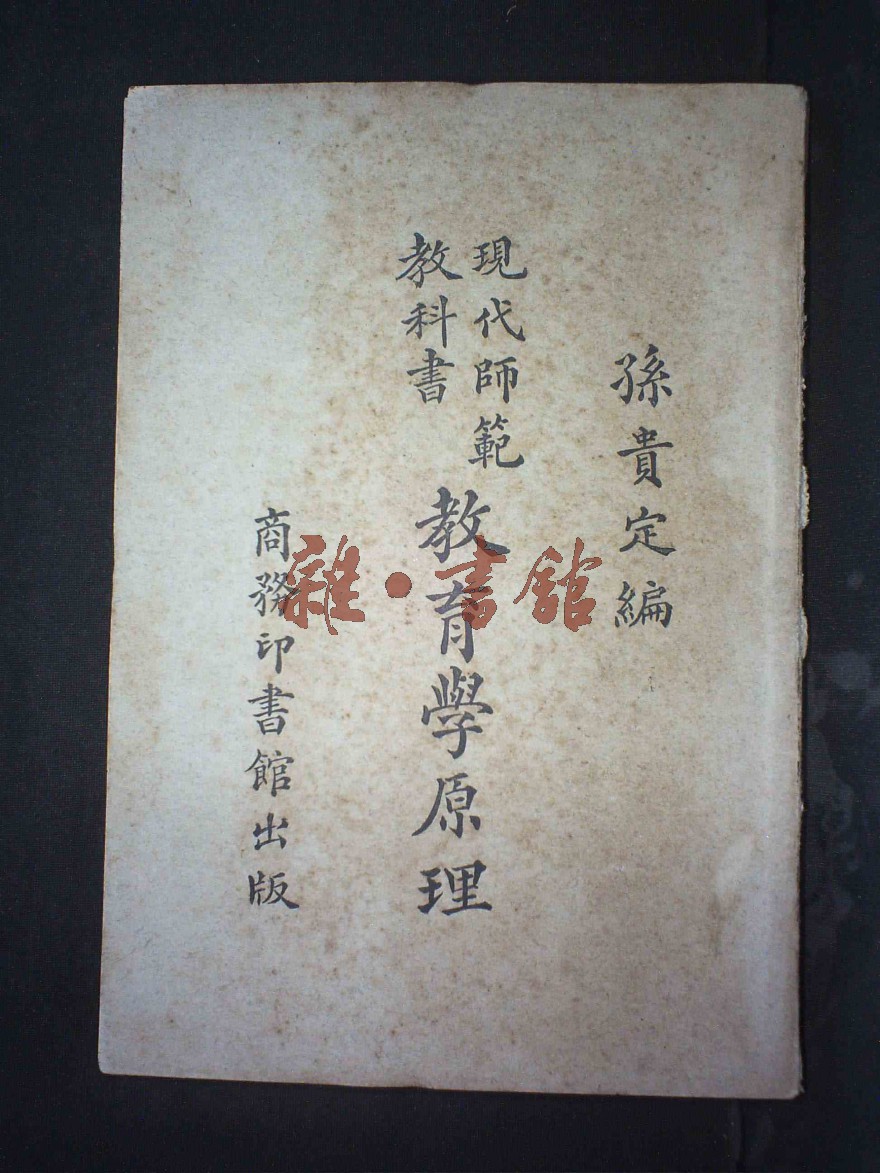 孫貴定編
現代師範
教科書
教育學原理
商務印書館出版
雜·書館